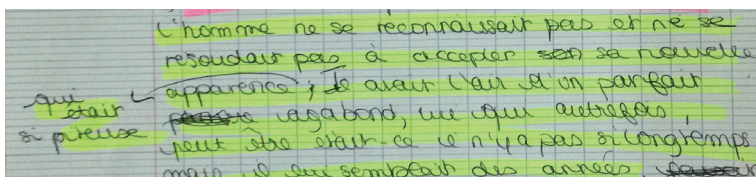 L'homme ne se reconnaissait pas et ne se
resoudait pas à accepter sa nouvelle
apparence ; il avait l'air d'un parfait
qui était si piteuse
vagabond, lui qui autrefois,
peut être était-ce il n'y a pas si longtemps
mais il lui semblait des années,